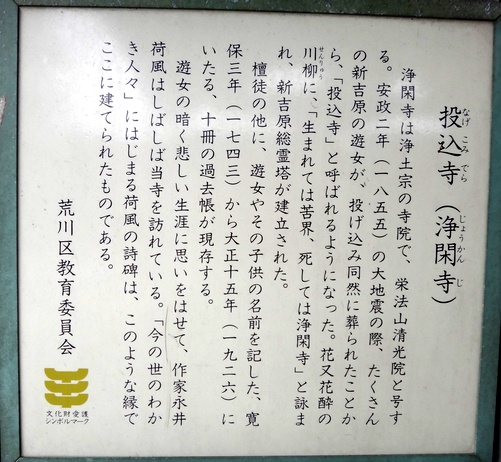 投込寺（浄閑寺）
なげこみでら
じょうかんじ
浄閑寺は浄土宗の寺院で、栄法山清光院と号す
る。安政二年（一八五五）の大地震の際、たくさん
の新吉原の遊女が、投げ込み同然に葬られたことか
ら、「投込寺」と呼ばれるようになった。花又花酔の
川柳に、「生まれては苦界、死しては浄閑寺」と詠ま
せんりゅう
れ、新吉原総霊塔が建立された。
檀徒の他に、遊女やその子供の名前を記した、寛
保三年（一七四三）から大正十五年（一九二六）に
いたる、十冊の過去帳が現存する。
遊女の暗く悲しい生涯に思いをはせて、作家永井
荷風はしばしば当寺を訪れている。「今の世のわか
き人々」にはじまる荷風の詩碑は、このような縁で
ここに建てられたものである。
荒川区教育委員会
文化財愛護
シンボルマーク